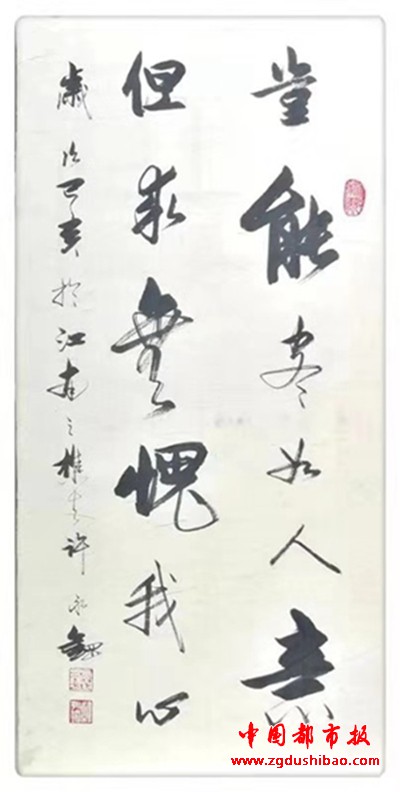 岂能尽如人意
但求无愧我心
歲次己亥於江南之
許
中国都市报
www.zgdushibao.com